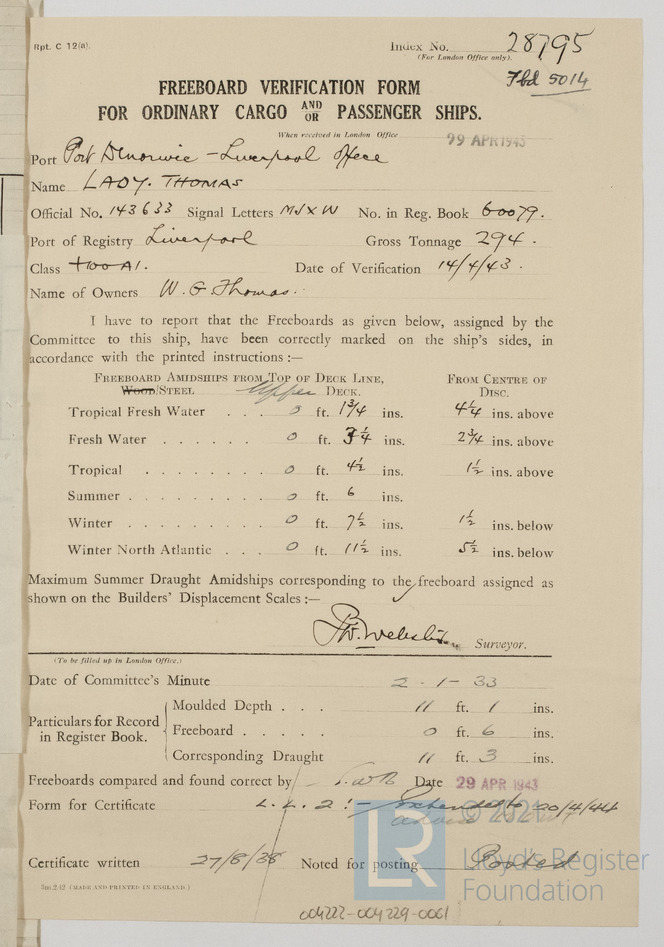 Rpt. C 12(a).
Index No. 28795
(For London Office only).
Fbd 5014
FREEBOARD VERIFICATION FORM
FOR ORDINARY CARGO AND OR PASSENGER SHIPS.
When received in London Office 29 APR 1943
Port Port Dinorwic - Liverpool Office
Name LADY. THOMAS
Official No. 143633 Signal Letters MJXW No. in Reg. Book 60079.
Port of Registry Liverpool Gross Tonnage 294.
Class 100 A1. Date of Verification 14/4/43.
Name of Owners W. G. Thomas.
I have to report that the Freeboards as given below, assigned by the
Committee to this ship, have been correctly marked on the ship's sides, in
accordance with the printed instructions :—
FREEBOARD AMIDSHIPS FROM TOP OF DECK LINE, FROM CENTRE OF
WOOD/STEEL Upper DECK. DISC.
Tropical Fresh Water . . . 0 ft. 1¾ ins. 4¼ ins. above
Fresh Water . . . . . . 0 ft. 3¼ ins. 2¾ ins. above
Tropical . . . . . . . 0 ft. 4½ ins. 1½ ins. above
Summer . . . . . . . . 0 ft. 6 ins.
Winter . . . . . . . . 0 ft. 7½ ins. 1½ ins. below
Winter North Atlantic . . . 0 ft. 11½ ins. 5½ ins. below
Maximum Summer Draught Amidships corresponding to the freeboard assigned as
shown on the Builders' Displacement Scales :—
Webster Surveyor.
(To be filled up in London Office.)
Date of Committee's Minute 2-1-33
Particulars for Record in Register Book.
Moulded Depth . . . 11 ft. 1 ins.
Freeboard . . . . . 0 ft. 6 ins.
Corresponding Draught 11 ft. 3 ins.
Freeboards compared and found correct by Date 29 APR 1943
Form for Certificate L.L.2 :- Extended to 20/4/44
© 2021
Certificate written 27/8/38 Noted for posting Posted
LR Lloyd's Register
Foundation
5m.2.42 (MADE AND PRINTED IN ENGLAND.)
004222-004229-0061